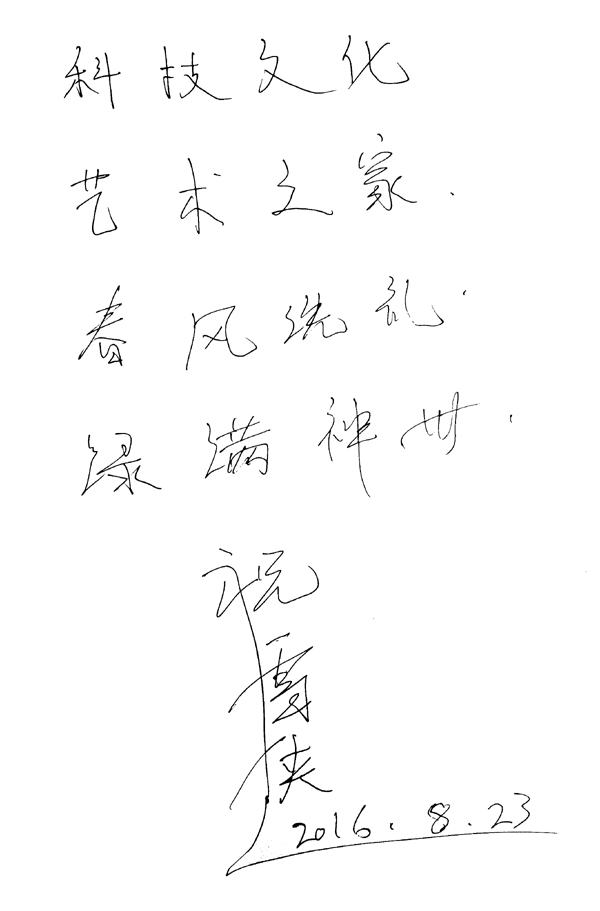 科技文化
艺术之家.
春风洗礼.
绿满神州.
祝雪侠
2016.8.23